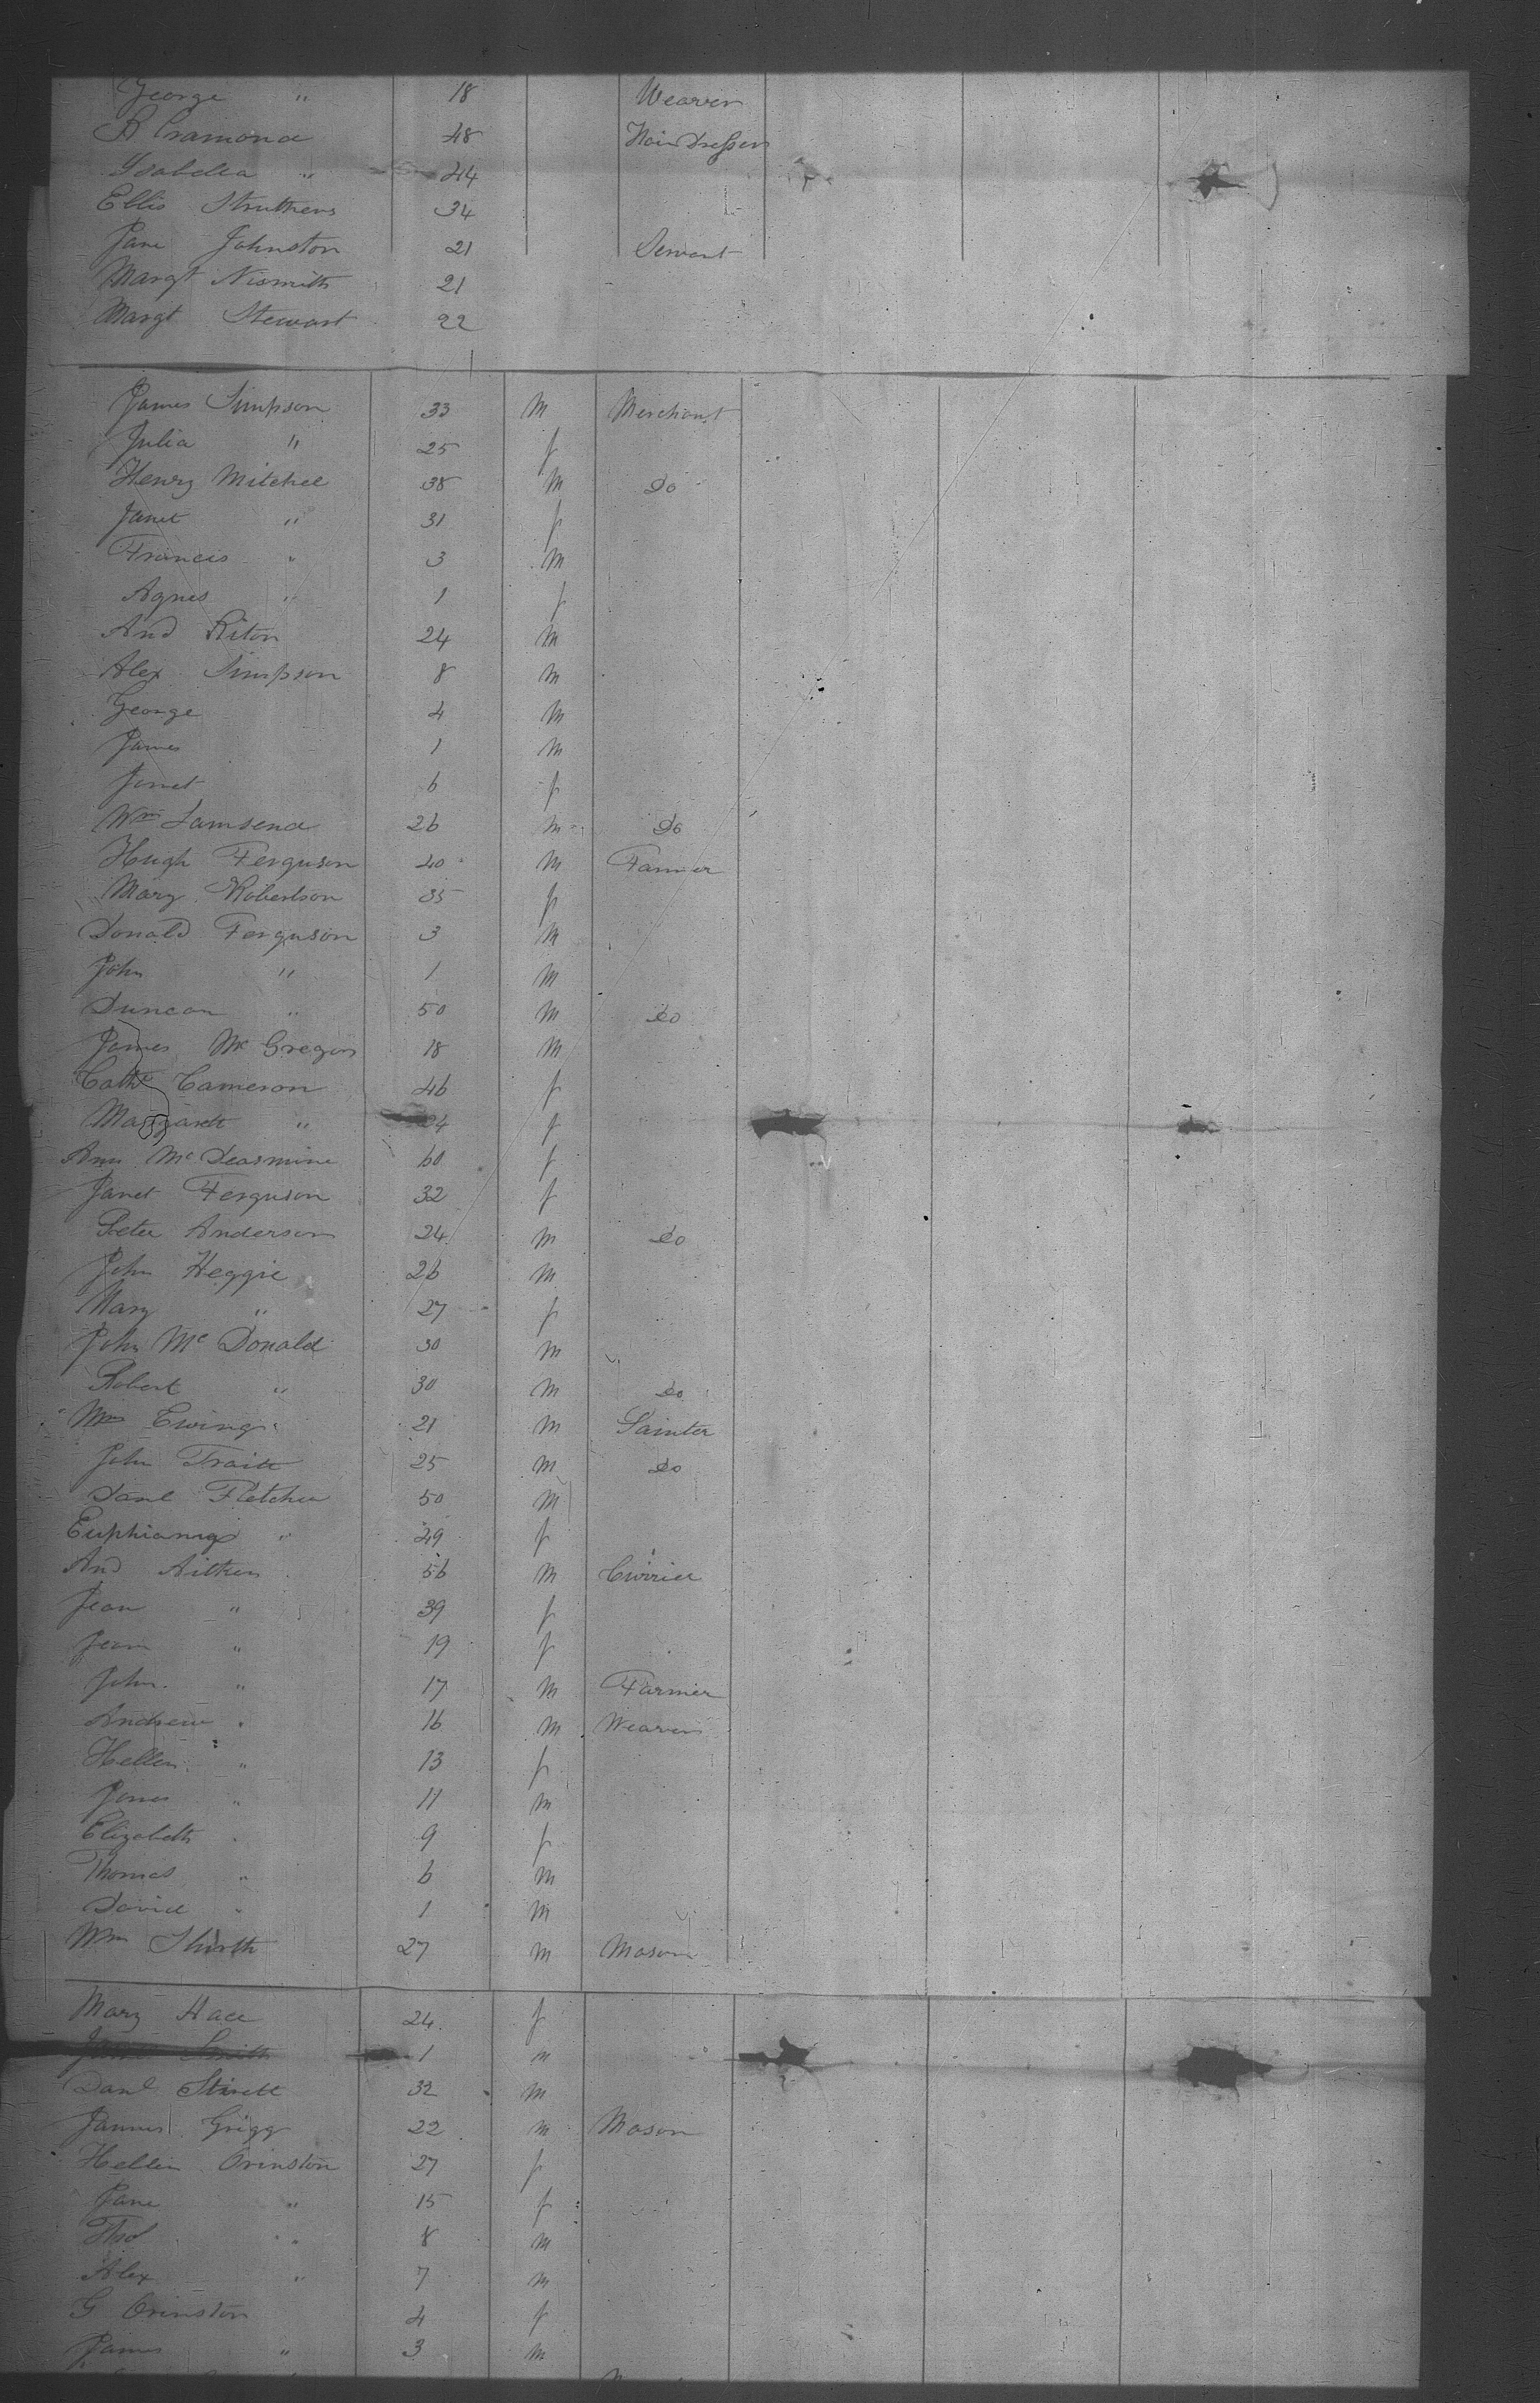 George " 18 Weaver
R Cramond 48 Hair Dresser
Isabella " 44
Ellis Struthers 34
Jane Johnston 21 Servant
Margt Nismith 21
Margt Stewart 22
James Simpson 33 M Merchant
Julia " 25 f
Henry Mitchel 38 M Do
Janet " 31 f
Francis " 3 M
Agnes " 1 f
And Riton 24 M
Alex Simpson 8 M
George 4 M
James 1 M
Jonet 6 f
Wm 26 M Do
Hugh Ferguson 40 M Farmer
Mary Robertson 35 f
Donald Ferguson 3 M
John " 1 M
Duncan " 50 M Do
James Mc Gregor 18 M
Cathe Cameron 46 f
Margaret " 24 f
Ann Mc 60 f
Janet Ferguson 32 f
Peter Anderson 24 M Do
John Heggie 26 M
Mary " 27 f
John Mc Donald 30 M
Robert " 30 M Do
Wm Ewing 21 M Painter
John 25 M Do
Danl Fletcher 50 M
" 29 f
And Aitken 56 M Currier
Jean " 39 f
Jean " 19 f
John " 17 M Farmer
Andrew " 16 M Weaver
Hellen " 13 f
James " 11 M
Elizabeth " 9 f
Thomas " 6 M
David " 1 M
Wm 27 M Mason
Mary 24 f
Smith 1 m
Danl 32 m
James Grigg 22 m Mason
Hellen Orinston 27 f
Jane " 15 f
" 8 m
Alex " 7 m
G Orinston 4 f
James " 3 m